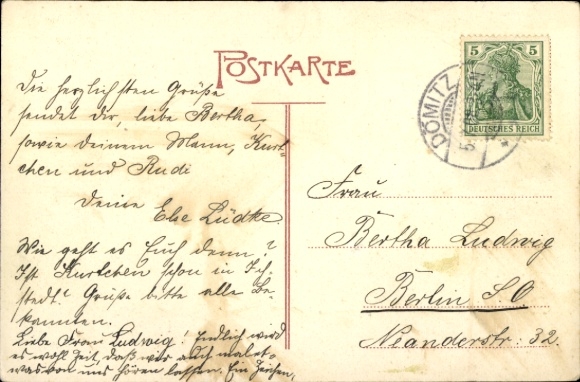 POSTKARTE
Die herzlichsten Grüße
sendet dir, liebe Bertha,
sowie deinem Mann, Kurt-
chen und Rudi
Deine
Else Lüdke.
Wie geht es Euch denn?
Ist Kurtchen schon in
stadt? Grüße bitte alle Be-
kannten.
Liebe Frau Ludwig! Endlich wird
es wohl Zeit, daß wir auch mal et-
was von uns hören lassen. Ein
5 5
DEUTSCHES REICH
DÖMITZ
Frau
Bertha Ludwig
Berlin S.O
Neanderstr: 32.